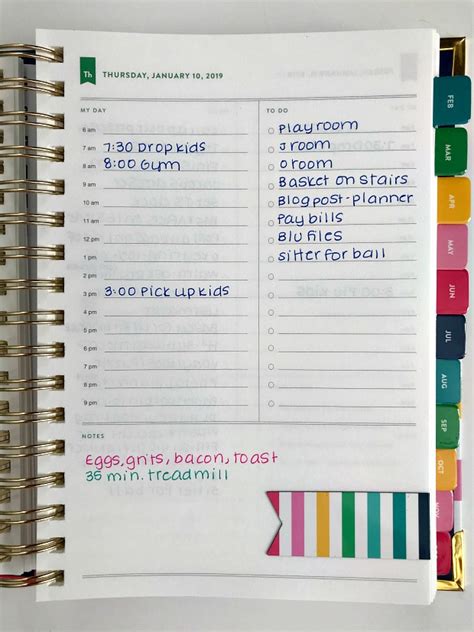 Th THURSDAY, JANUARY 10, 2019
MY DAY
6 am
7 am 7:30 Drop kids
8 am 8:00 Gym
9 am
10 am
11 am
12 pm
1 pm
2 pm
3 pm 3:00 Pick up kids
4 pm
5 pm
6 pm
7 pm
8 pm
9 pm
TO DO
Playroom
J room
O room
Basket on stairs
Blog post - planner
Pay bills
Blu files
sitter for ball
NOTES
Eggs, grits, bacon, toast
35 min. treadmill
FEB
MAR
APR
MAY
JUN
JUL
AUG
SEP
OCT
NOV